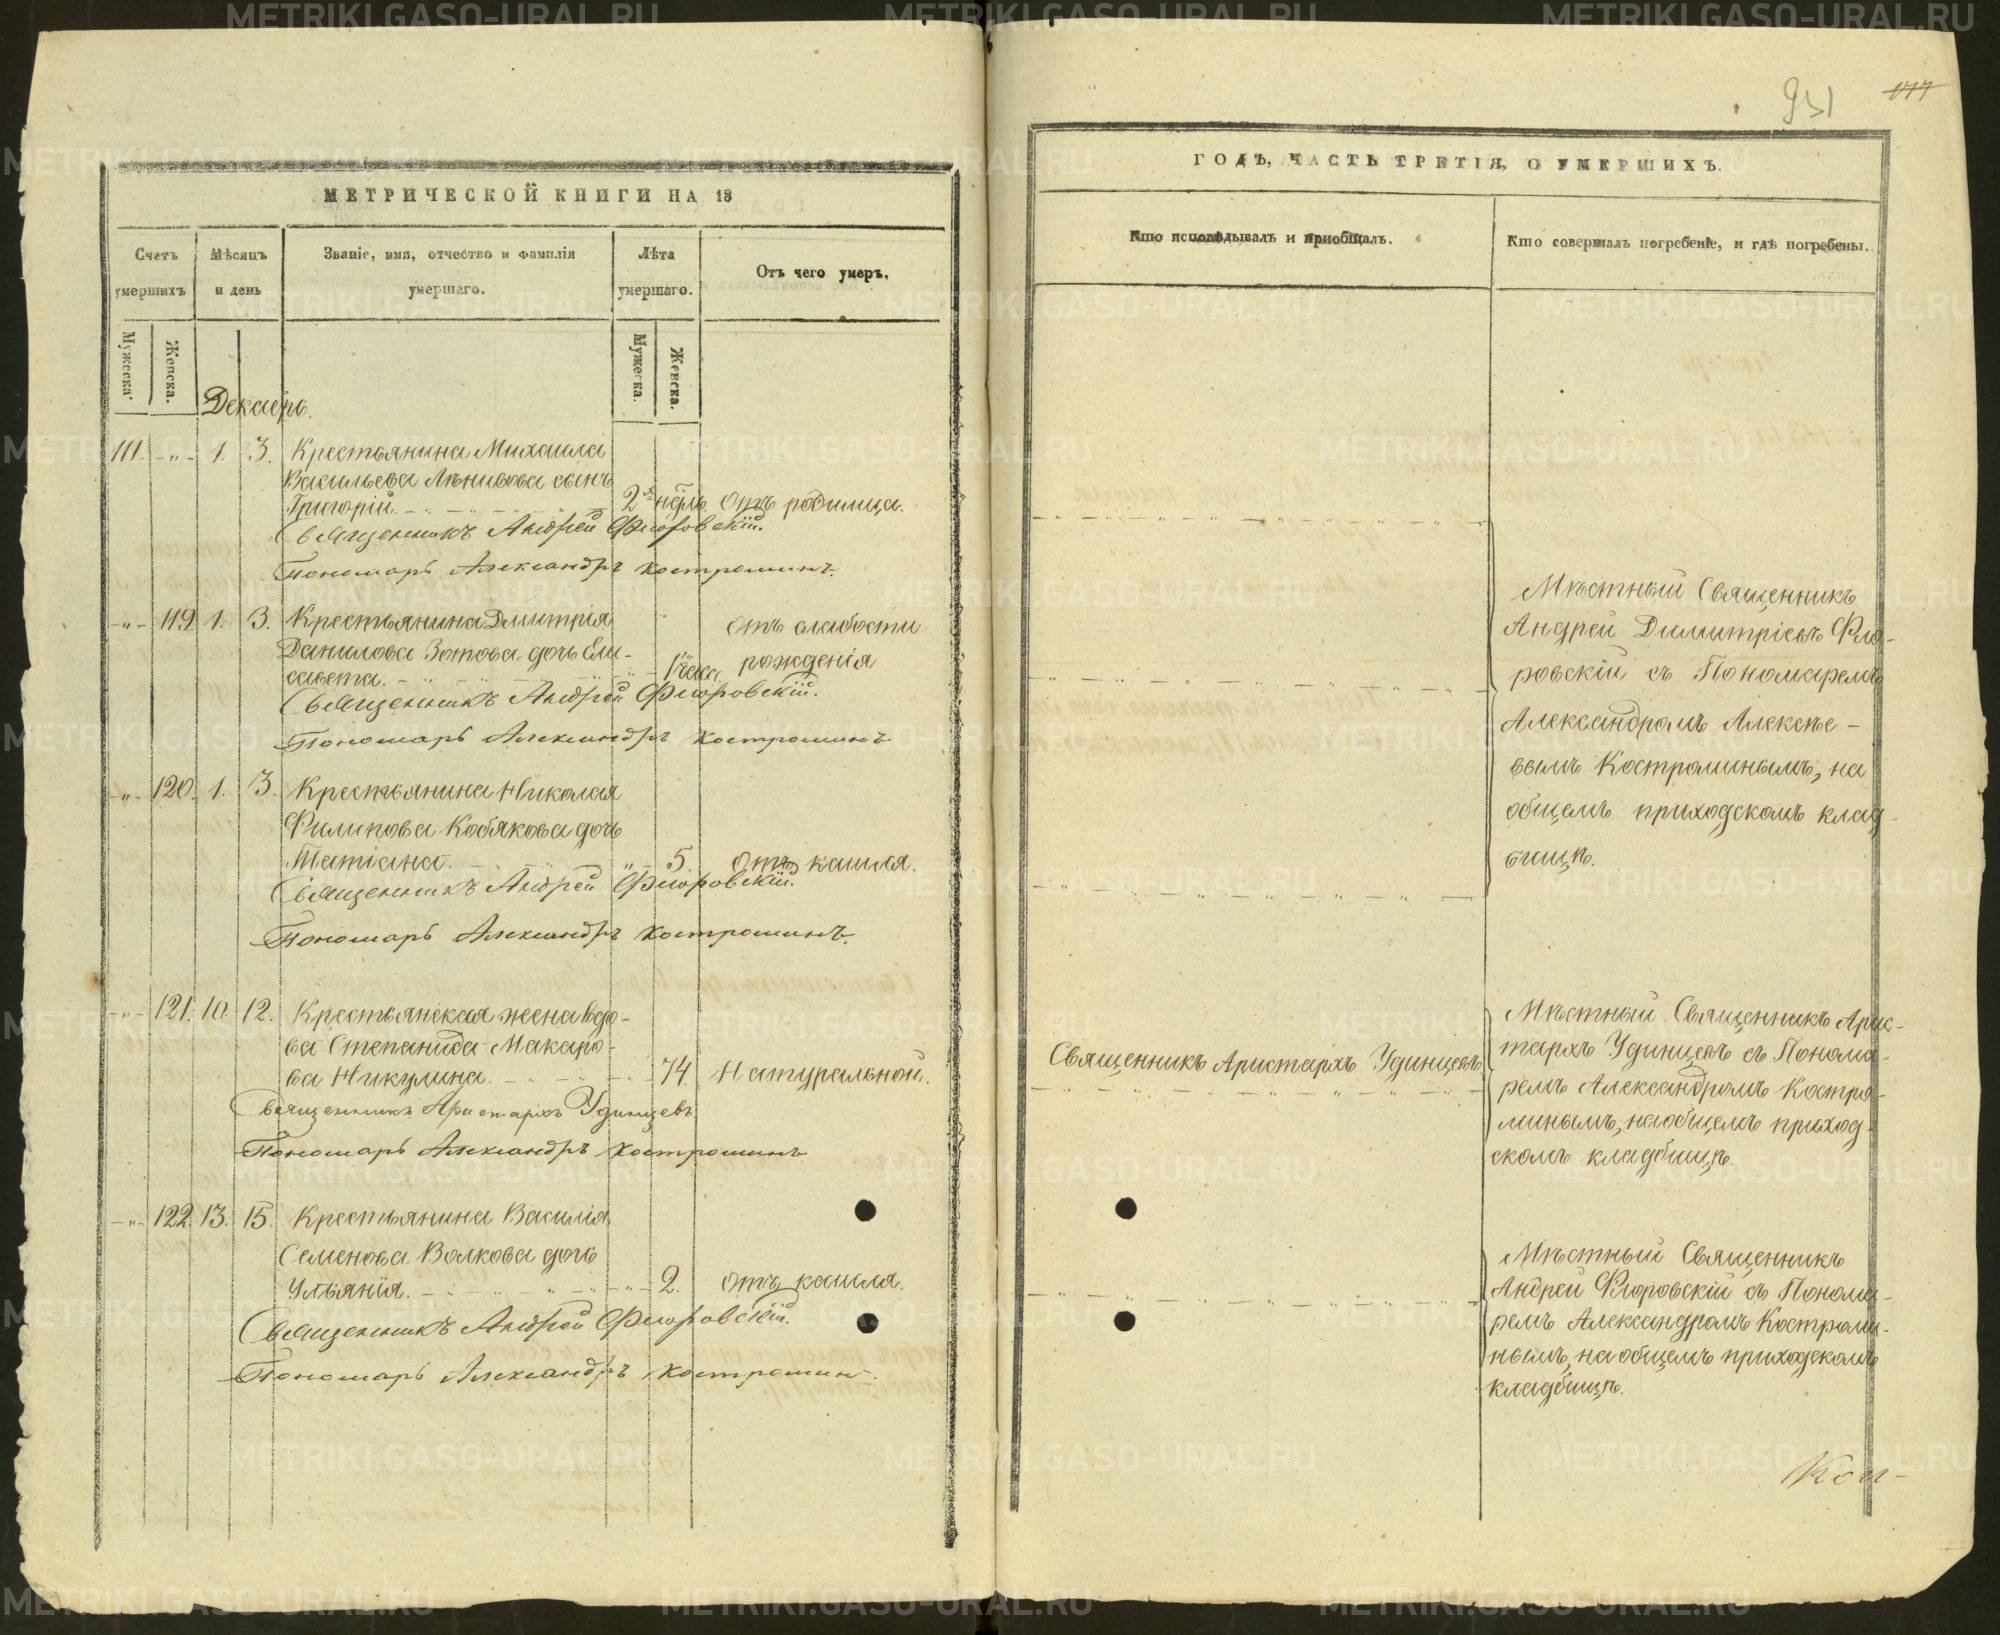 МЕТРИЧЕСКОЙ КНИГИ НА 18
Счетъ умершихъ
Мѣсяцъ и день
Званіе, имя, отчество и фамилія умершаго.
Лѣта умершаго.
Отъ чего умеръ.
Мужеска.
Женска.
Мужеска.
Женска.
Декабрь.
111. - „ - 1. 3. Крестьянина Михаила
Васильева Лѣнивова сынъ
Григорій. 2 нѣдль. отъ родимца.
Священникъ Андрей Флоровскій.
Пономарь Александръ Костроминъ.
- „ - 119. 1. 3. Крестьянина Димитрія
Данилова Зотова дочь Ели-
савета. 1 часа. отъ слабости
рожденія
Священникъ Андрей Флоровскій.
Пономарь Александръ Костроминъ.
- „ - 120. 1. 3. Крестьянина Николая
Филипова Кобякова дочь
Татіана. - „ - 5. отъ кашля.
Священникъ Андрей Флоровскій.
Пономарь Александръ Костроминъ.
- „ - 121. 10. 12. Крестьянская жена вдо-
ва Степанида Макаро-
ва Никулина. - „ - 74. Натуральной.
Священникъ Аристархъ Удинцевъ
Пономарь Александръ Костроминъ
- „ - 122. 13. 15. Крестьянина Василія
Семенова Волкова дочь
Ульянія. - „ - 2. отъ кашля.
Священникъ Андрей Флоровскій.
Пономарь Александръ Костроминъ.
951
177
ГОДЪ, ЧАСТЬ ТРЕТІЯ, О УМЕРШИХЪ.
Кто исповѣдывалъ и приобщалъ.
Кто совершалъ погребеніе, и гдѣ погребены.
Мѣстный Священникъ
Андрей Димитріевъ Фло-
ровскій съ Пономаремъ
Александромъ Алексѣе-
вымъ Костроминымъ, на
общемъ приходскомъ клад-
бищѣ.
Священникъ Аристархъ Удинцевъ
Мѣстный Священникъ Арис-
тархъ Удинцевъ съ Понома-
ремъ Александромъ Костро-
минымъ, на общемъ приход-
скомъ кладбищѣ.
Мѣстный Священникъ
Андрей Флоровскій съ Понома-
ремъ Александромъ Костроми-
нымъ, на общемъ приходскомъ
кладбищѣ.
METRIKI.GASO-URAL.RU